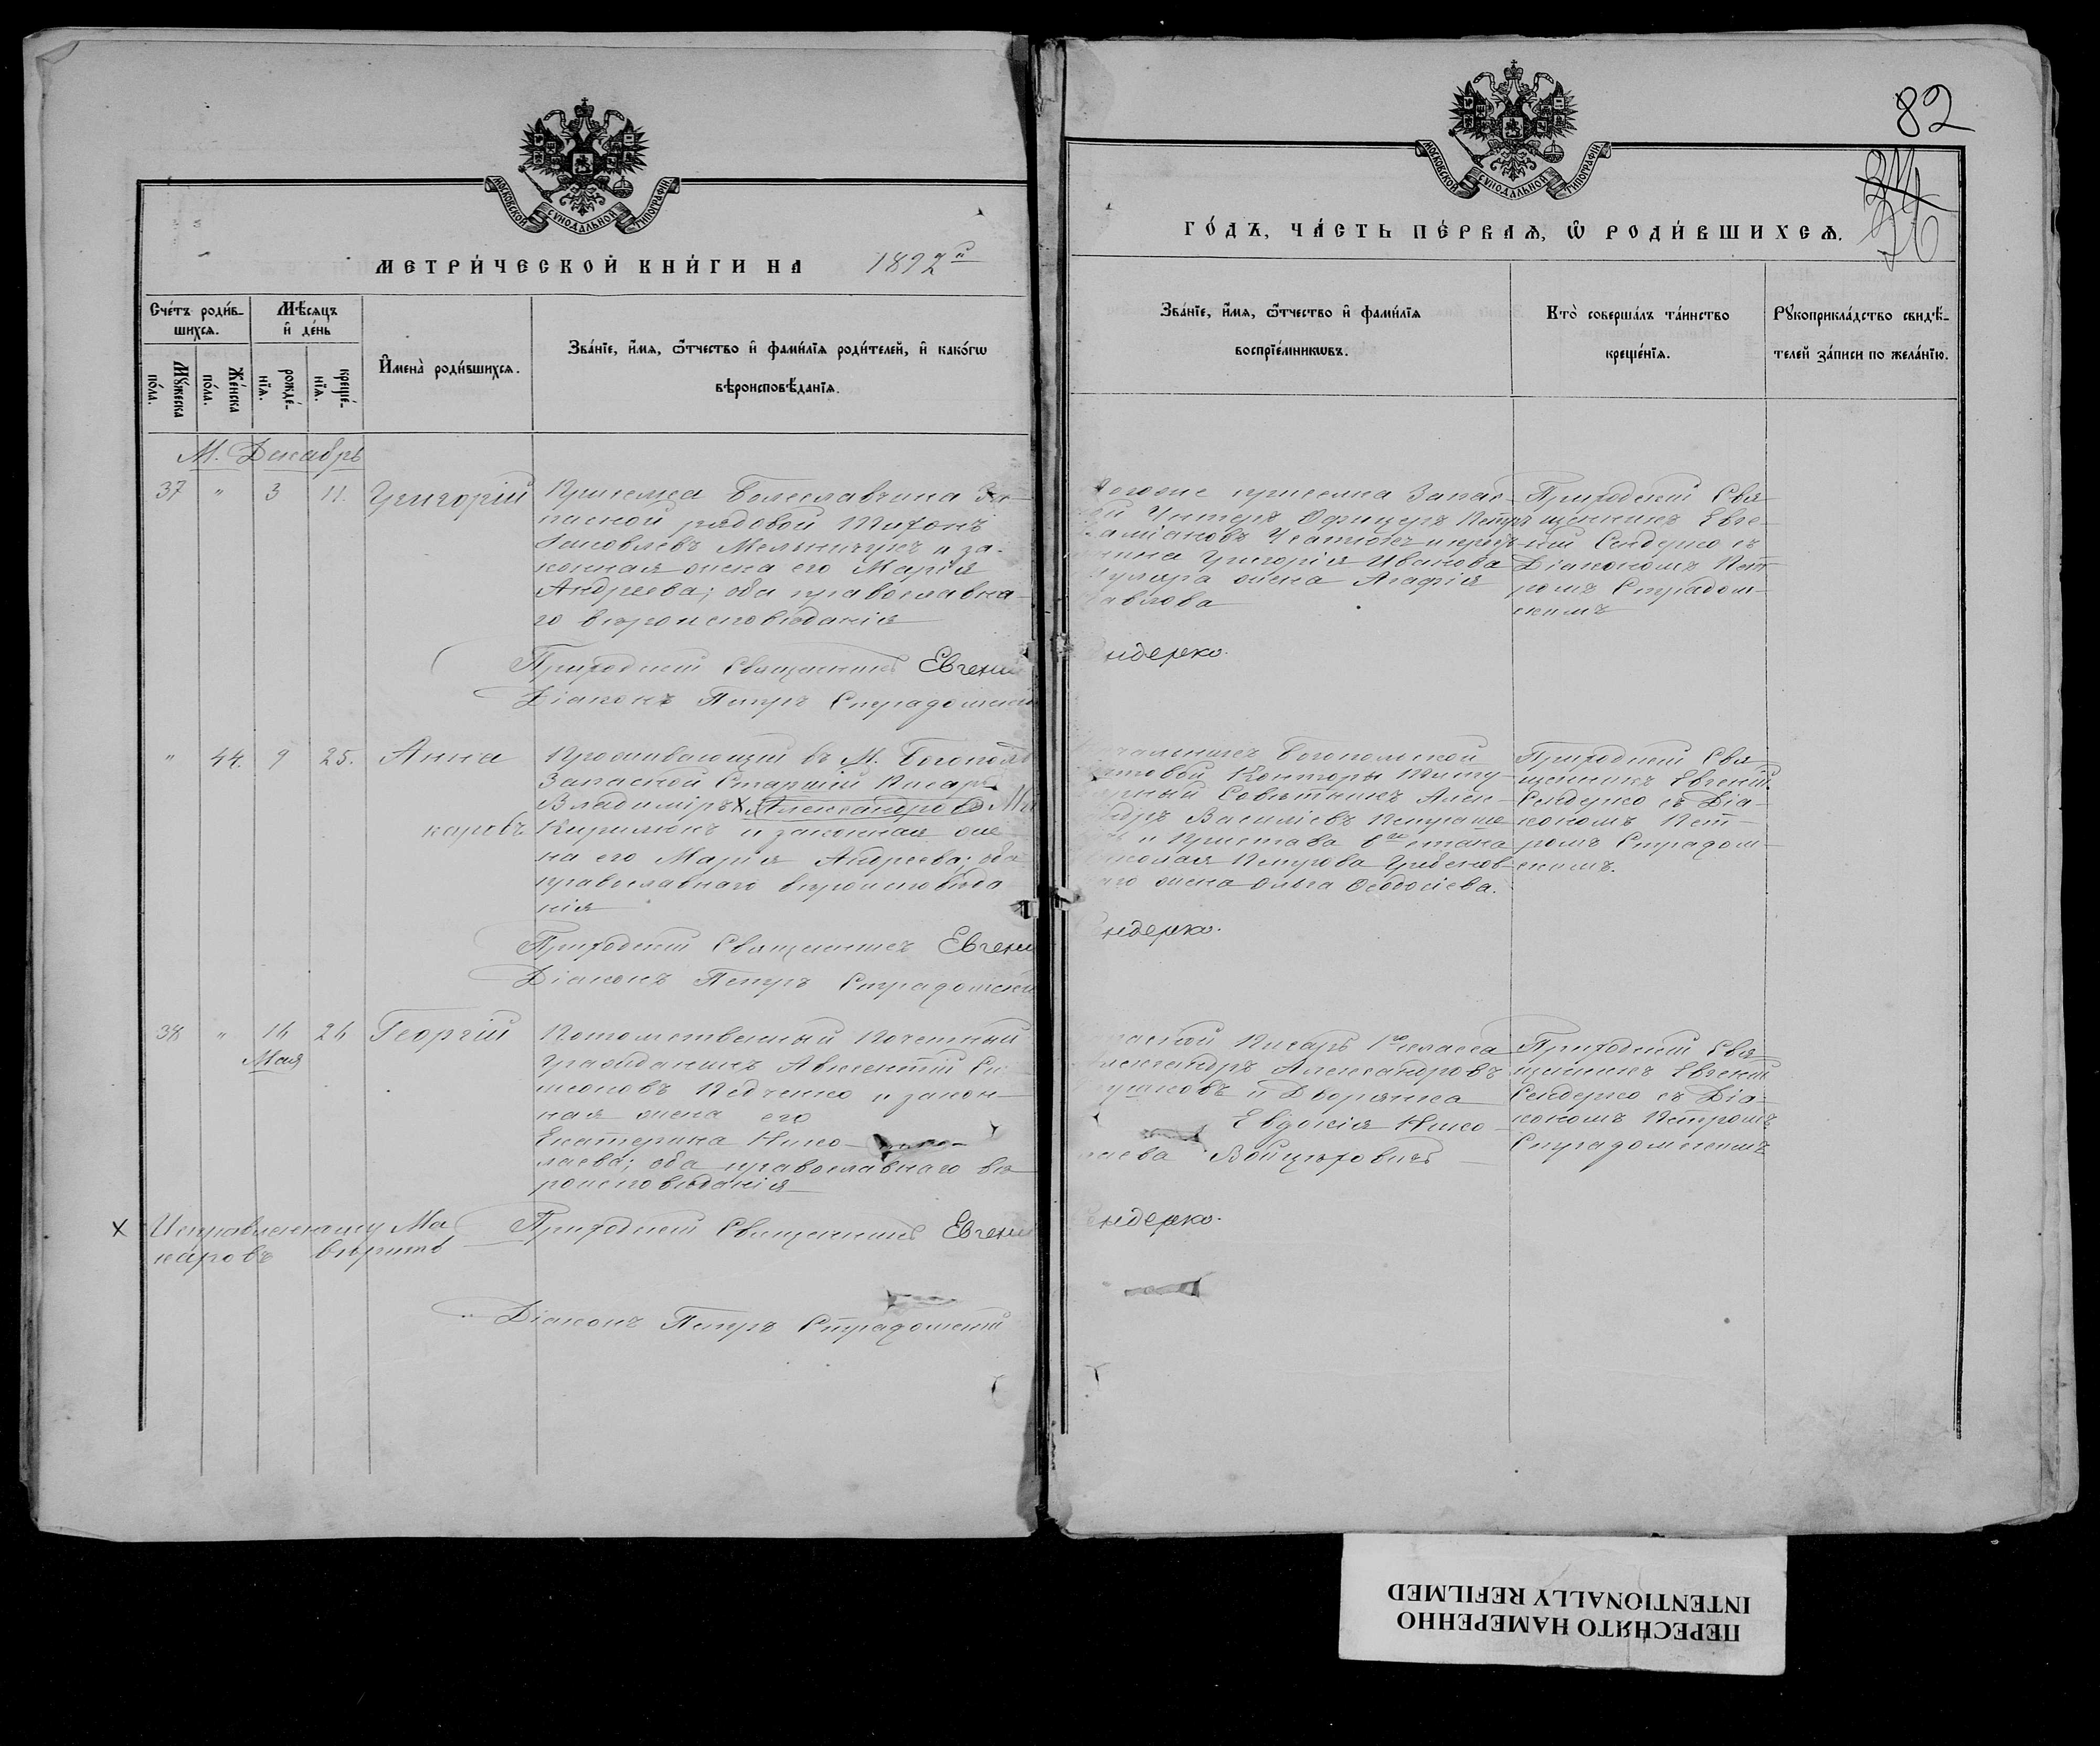 МОСКОВСКОЙ СѴНОДАЛЬНОЙ ТИПОГРАФІИ
МЕТРИ́ЧЕСКОЙ КНИ́ГИ НА 1892й
Сче́тъ роди́в-
шихсѧ.
Мꙋ́жеска по́ла.
Же́нска по́ла.
Мѣ́сѧцъ и҆ де́нь
рожде́-
нїѧ.
креще́-
нїѧ.
И҆мена̀ роди́вшихсѧ.
Зва́нїе, и҆́мѧ, ѻ҆́тчество и҆ фами́лїѧ роди́телей, и҆ како́гѡ
вѣроисповѣ́данїѧ.
М. Декабрь
37 " 3 11. Григорій
Пришлеца Болеславчика За-
пасной рядовой Тихонъ
Яковлевъ Мельничукъ и за-
конная жена его Марія
Андреева; оба православна-
го вѣроисповѣданія
Приходскій Священникъ Евгеній
Діаконъ Петръ Страдомскій
" 44. 9 25. Анна
Проживающій въ М. Богополѣ
Запасной Старшій Писарь
Владиміръ X Александровъ Ма
каровъ Кирилюкъ и законная же-
на его Марія Андреева; оба
православнаго вѣроисповѣда
нія
Приходскій Священникъ Евгеній
Діаконъ Петръ Страдомскій
38 " 16 26 Георгій
Мая
Потомственный Почетный
Гражданинъ Авксентій Си
меоновъ Педченко и закон-
ная жена его
Екатерина Нико-
лаева; оба православнаго вѣ
роисповѣданія
X Исправленному Ма
каровъ вѣрить
Приходскій Священникъ Евгеній
Діаконъ Петръ Страдомскій
82
МОСКОВСКОЙ СѴНОДАЛЬНОЙ ТИПОГРАФІИ
ГО́ДЪ, ЧА́СТЬ ПЕ́РВАѦ, Ѡ҆ РОДИ́ВШИХСѦ.
Зва́нїе, и҆́мѧ, ѻ҆́тчество и҆ фами́лїѧ
воспрїе́мникѡвъ.
Кто̀ соверша́лъ та́инство
креще́нїѧ.
Рꙋкоприкла́дство свидѣ́-
телей за́писи по жела́нїю.
Запас-
Унтеръ Офицеръ Петръ
Григорія Иванова
жена Агафія
Павлова
Приходскій Свя
щенникъ Евге-
ній Сендерко съ
Діакономъ Пет
ромъ Страдом-
скимъ
ндерко.
Богопольской
Конторы Титу-
Совѣтникъ Алек-
Василіевъ Петраше
и Пристава 6го стана
Николая Петрова Грибенов-
жена Ольга Ѳеодосіева.
Приходскій Свя
щенникъ Евгеній
Сендерко съ Діа-
кономъ Пет-
ромъ Страдом-
скимъ.
ндерко.
Писарь 1го класса
Александръ Александровъ
и Дворянка
Евдокія Нико-
лаева Войцеховичъ
Приходскій Свя
щенникъ Евгеній
Сендерко съ Діа-
кономъ Петромъ
Страдомскимъ
ендерко.
ПЕРЕСНЯТО НАМЕРЕННО
INTENTIONALLY REFILMED